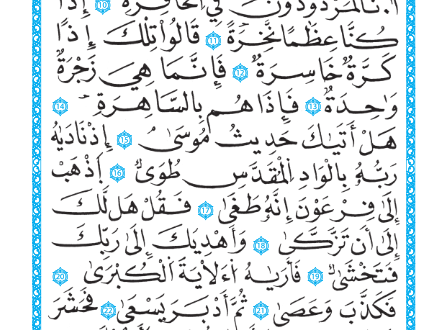 أَ.نَّا لَمَرْدُودُونَ فِي الْحَافِرَةِ 10 إِذَا
كُنَّا عِظَٰمًا نَّخِرَةً 11 قَالُواْ تِلْكَ إِذًا
كَرَّةٌ خَاسِرَةٌ 12 فَإِنَّمَا هِيَ زَجْرَةٌ
وَٰحِدَةٌ 13 فَإِذَا هُم بِالسَّاهِرَةِ 14
هَلْ أَتَيٰكَ حَدِيثُ مُوسَىٰ 15 إِذْ نَادَيٰهُ
رَبُّهُۥ بِالْوَادِ الْمُقَدَّسِ طُوَىٰ 16 اَذْهَبْ
إِلَىٰ فِرْعَوْنَ إِنَّهُۥ طَغَىٰ 17 فَقُلْ هَل لَّكَ
إِلَىٰ أَن تَزَّكَّىٰ 18 وَأَهْدِيَكَ إِلَىٰ رَبِّكَ
فَتَخْشَىٰ 19 فَأَرَيٰهُ اُ۬لَايَةَ اَ۬لْكُبْرَىٰ 20
فَكَذَّبَ وَعَصَىٰ 21 ثُمَّ أَدْبَرَ يَسْعَىٰ 22 فَحَشَرَ